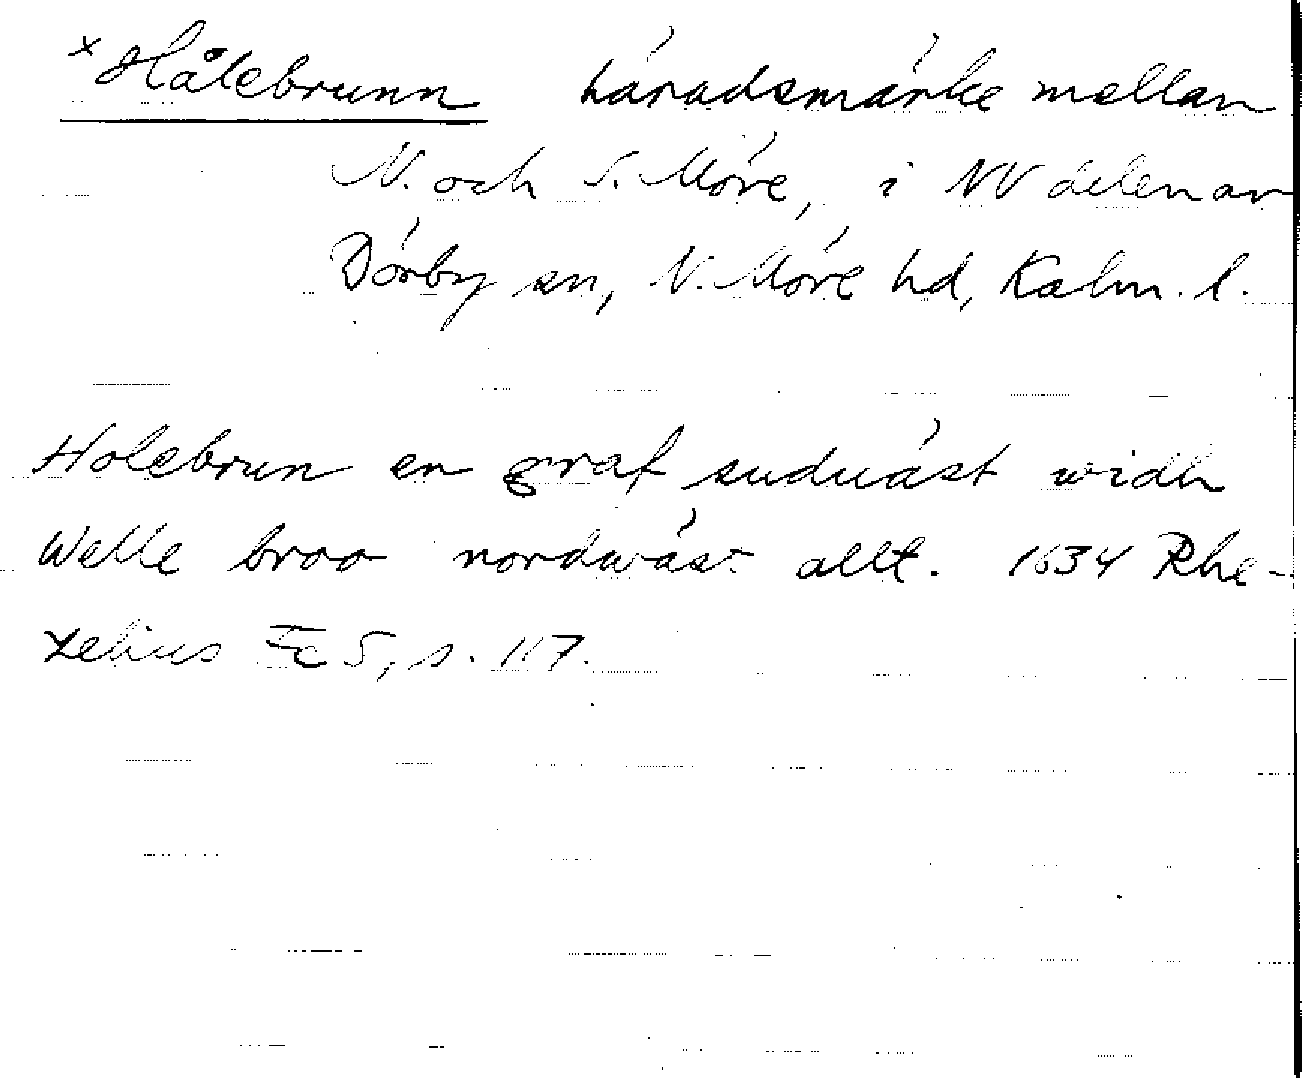 × Hålebrunn häradsmärke mellan
N. och S. Möre, i NV delen av
Dörby sn, N. Möre hd, Kalm. l.
Holebrun en graf suduäst widh
Welle broo nordwäst allt. 1634 Rhe-
zelius Fc 5, s. 117.